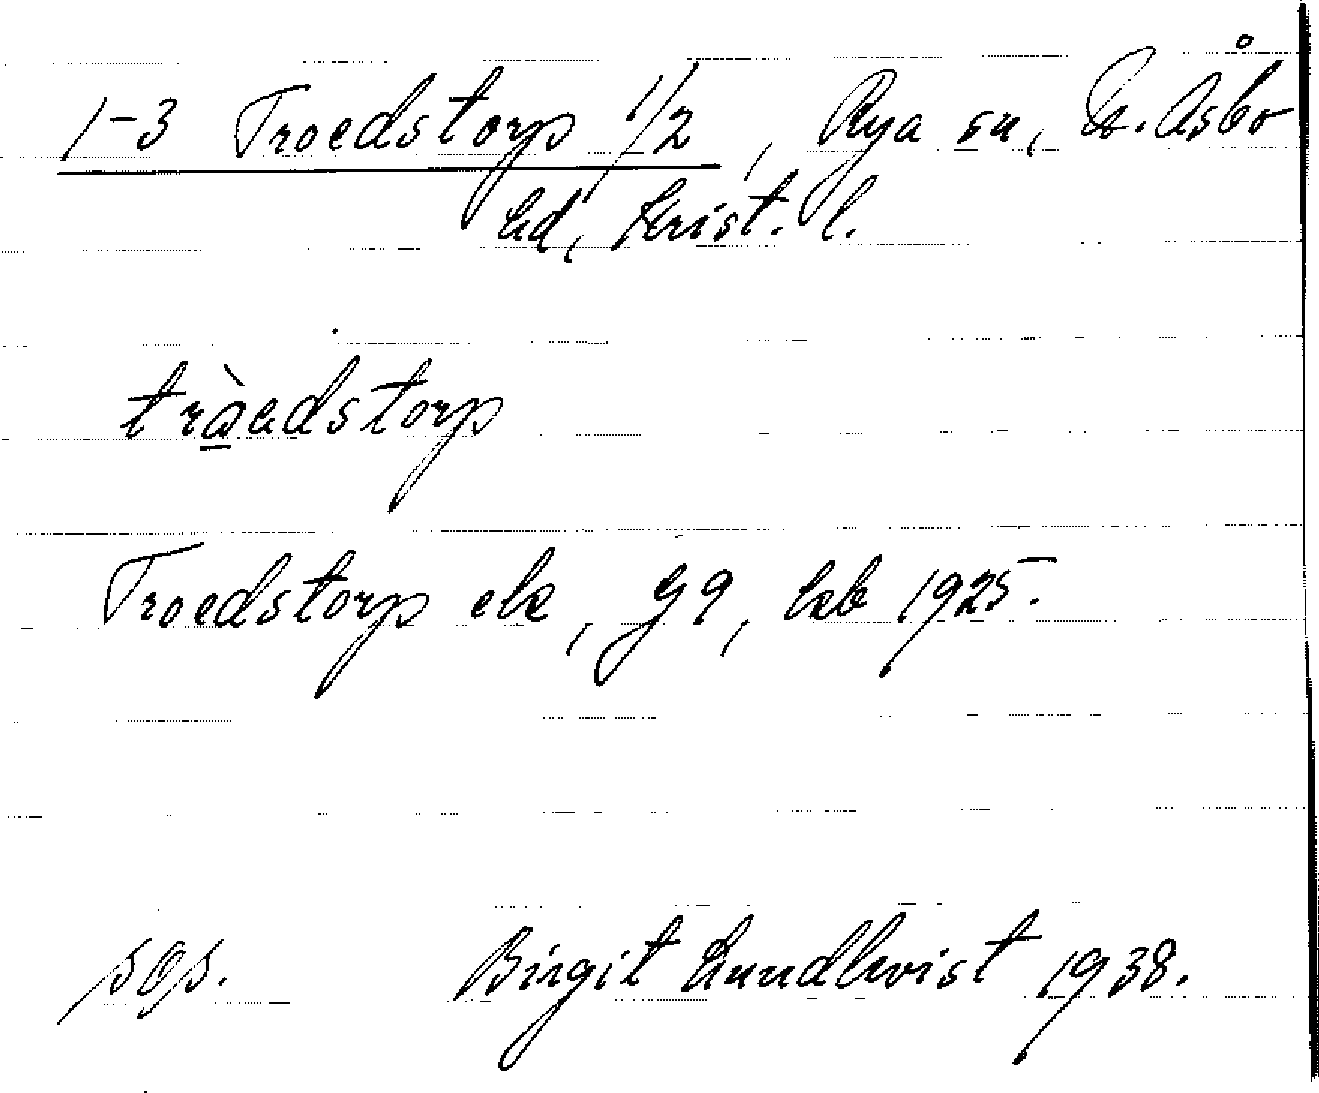 1-3 Troedstorp 1/2, Rya sn, N. Åsbo
hd, Krist. l.
tròaedstorp
Troedstorp ek, G9, kb 1925.
sgs. Birgit Lundkvist 1938.